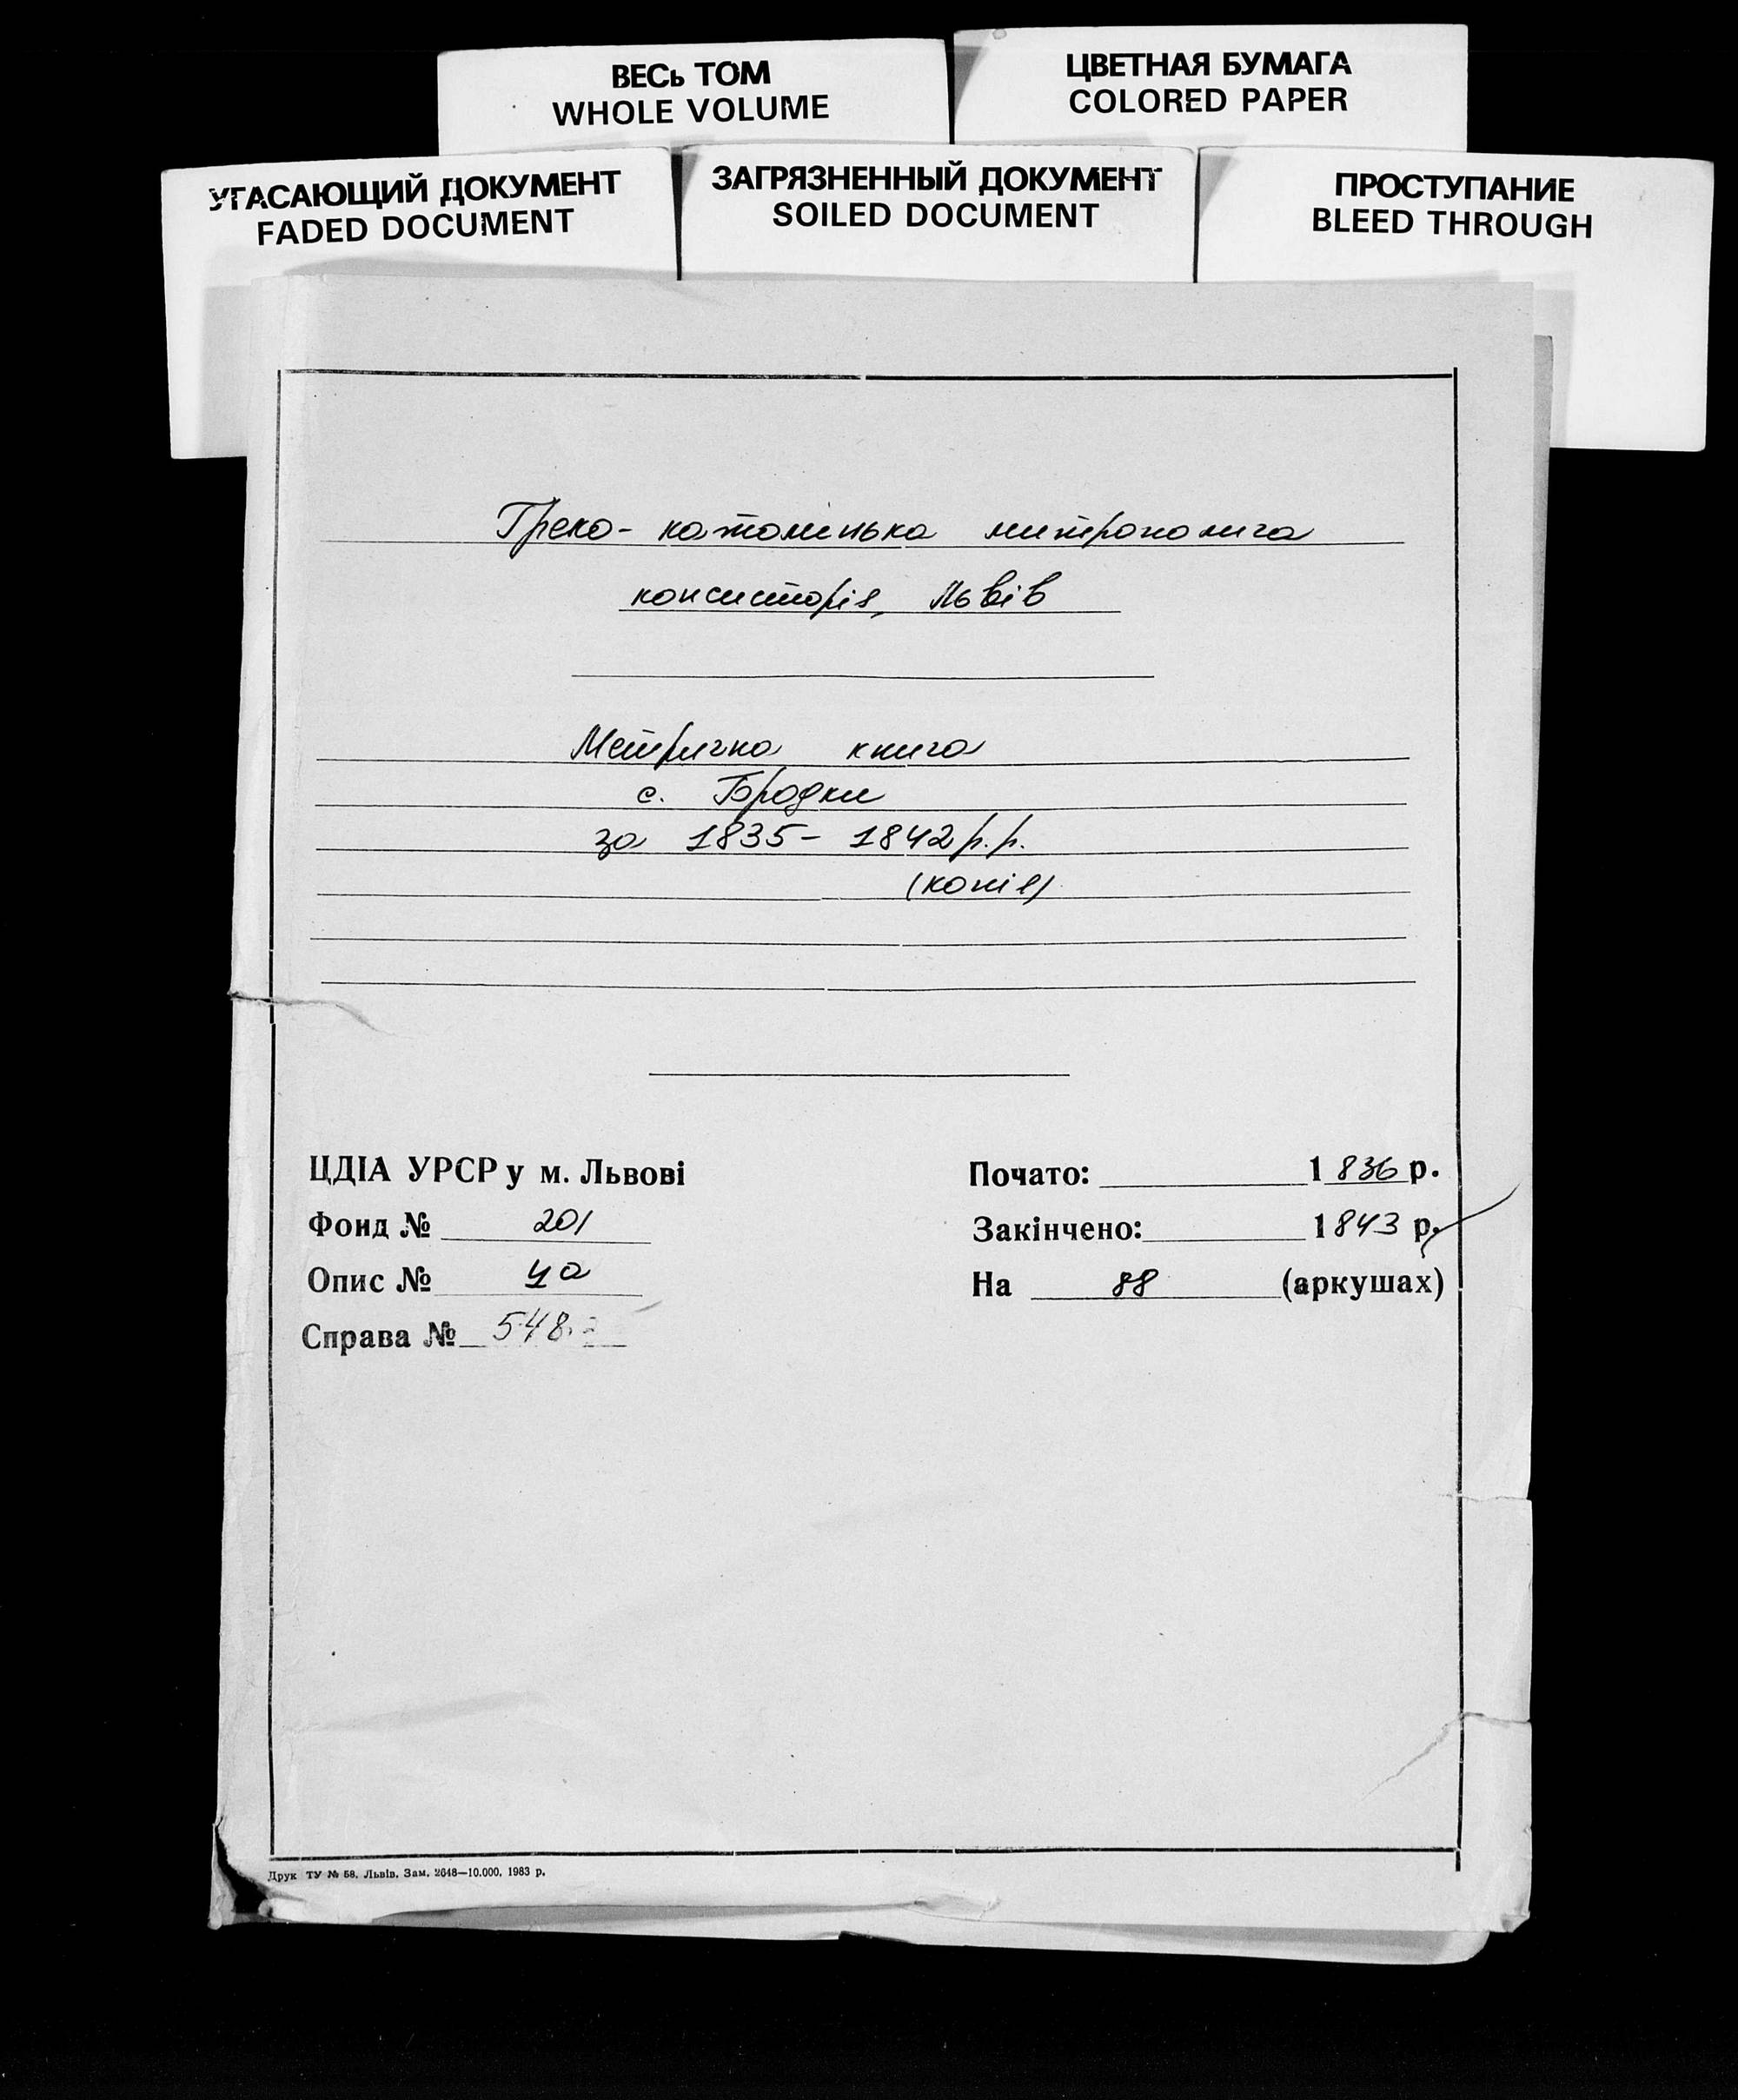 ВЕСЬ ТОМ
WHOLE VOLUME
ЦВЕТНАЯ БУМАГА
COLORED PAPER
УГАСАЮЩИЙ ДОКУМЕНТ
FADED DOCUMENT
ЗАГРЯЗНЕННЫЙ ДОКУМЕНТ
SOILED DOCUMENT
ПРОСТУПАНИЕ
BLEED THROUGH
Греко-католицька митрополича
консисторія, Львів
Метрична книга
с. Бродки
за 1835-1842 р.р.
(копія)
ЦДІА УРСР у м. Львові
Фонд № 201
Опис № 4а
Справа № 548
Почато: 1836 р.
Закінчено: 1843 р.
На 88 (аркушах)
Друк ТУ № 58. Львів. Зам. 2648—10.000. 1983 р.